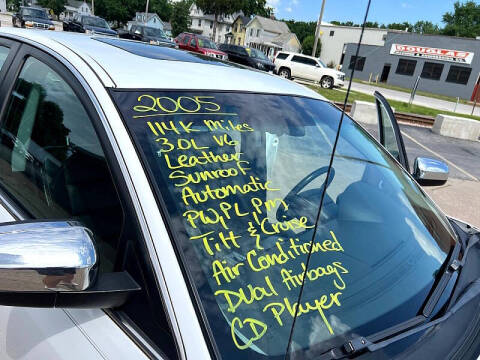 DOUGLAS
2005
114K Miles
3.0L V6
Leather
Sunroof
Automatic
PW, PL, pm,
Tilt & Cruise
Air Conditioned
Dual Airbags
CD Player